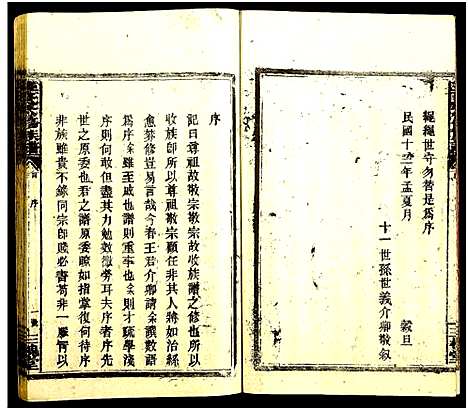 繩繩世守勿替是爲序
民國十二年孟夏月　穀旦
十一世孫世義介卿敬叙
序
記曰尊祖故敬宗敬宗故收族譜之修也所以
收族即所以尊祖敬宗顧任非其人將如治絲
愈棼修豈易言哉今春王君介卿請余譔數語
爲序余雖至戚也少而不敏才疏學淺
序則何敢但盡其力勉效勞耳夫序者序先
世之原委也君之譜原委瞭如指掌復何待序
非族雖貴不緣同宗即賤必書苟非一脈胥以
首　序
一
三槐堂